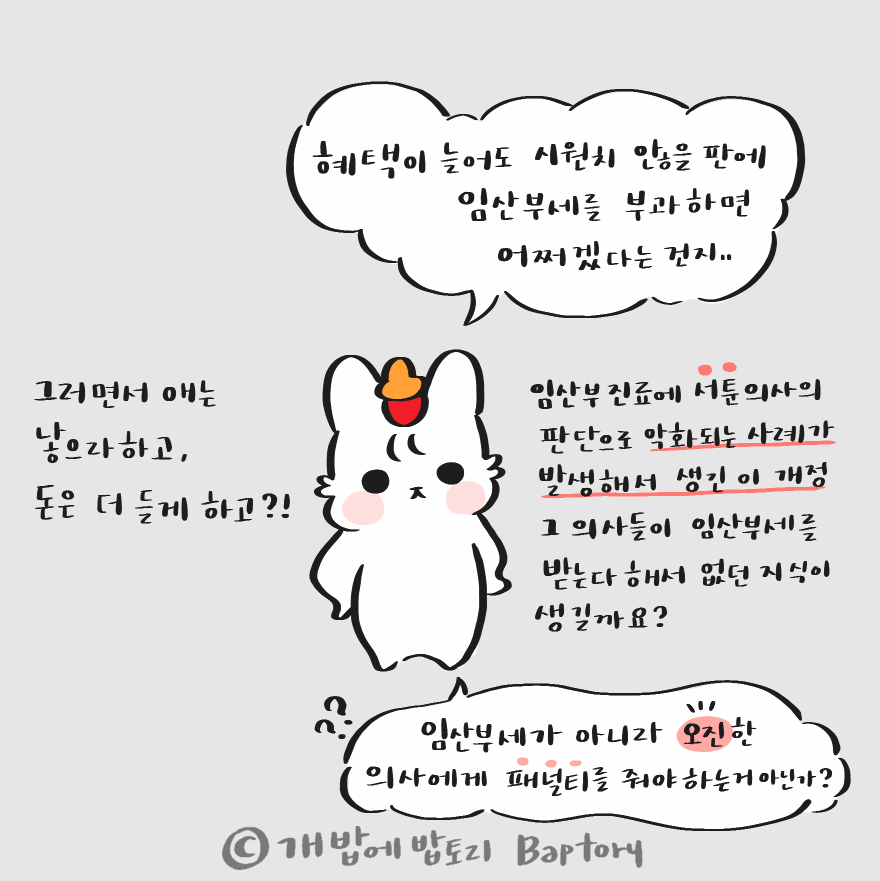 혜택이 늘어도 시원치 않을 판에
임산부세를 부과하면
어쩌겠다는 건지..
그러면서 애는
낳으라하고,
돈은 더 들게 하고?!
임산부진료에 서툰의사의
판단으로 악화되는 사례가
발생해서 생긴 이 개정
그 의사들이 임산부세를
받는다해서 없던 지식이
생길까요?
??
임산부세가 아니라 오진한
의사에게 패널티를 줘야하는거아닌가?
© 개밥에 밥토리 Baptory